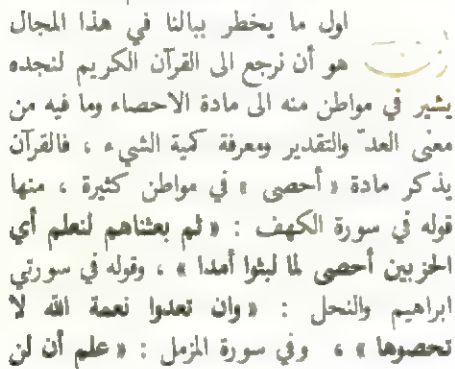 اول ما يخطر ببالنا في هذا المجال
هو أن نرجع الى القرآن الكريم لنجده
يشير في مواطن منه الى مادة الاحصاء وما فيه من
معنى العدّ والتقدير ومعرفة كمية الشيء ، فالقرآن
يذكر مادة « أحصى » في مواطن كثيرة ، منها
قوله في سورة الكهف : « ثم بعثناهم لنعلم أي
الحزبين أحصى لما لبثوا أمدا » ، وقوله في سورتي
ابراهيم والنحل : « وان تعدوا نعمة الله لا
تحصوها » ، وفي سورة المزمل : « علم أن لن